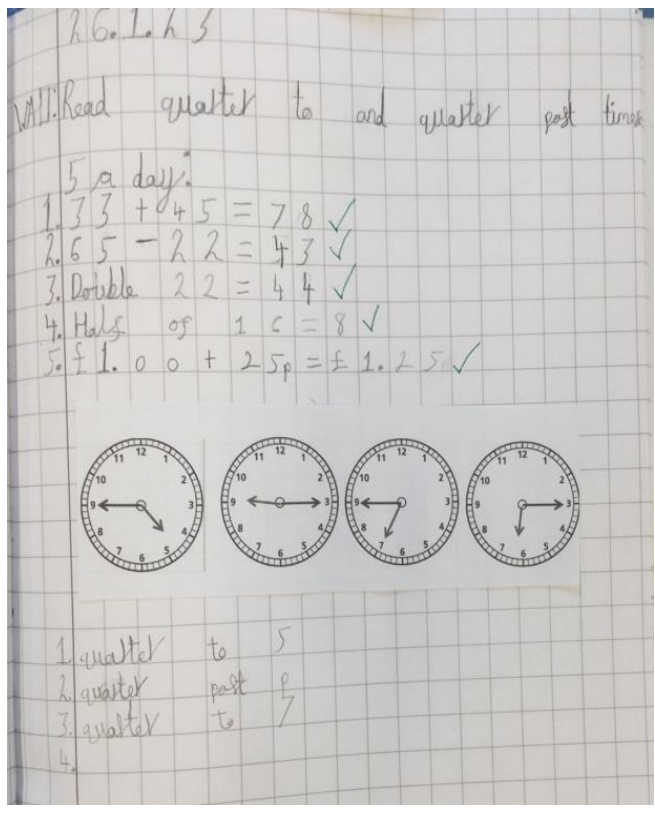 26.1.23
WALT: Read quarter to and quarter past times
5 a day:
1. 33 + 45 = 78 ✓
2. 65 - 22 = 43 ✓
3. Double 22 = 44 ✓
4. Half of 16 = 8 ✓
5. £1.00 + 25p = £1.25 ✓
12 1 2 3 4 5 6 7 8 9 10 11
12 1 2 3 4 5 6 7 8 9 10 11
12 1 2 3 4 5 6 7 8 9 10 11
12 1 2 3 4 5 6 7 8 9 10 11
1. quarter to 5
2. quarter past 9
3. quarter to 7
4.